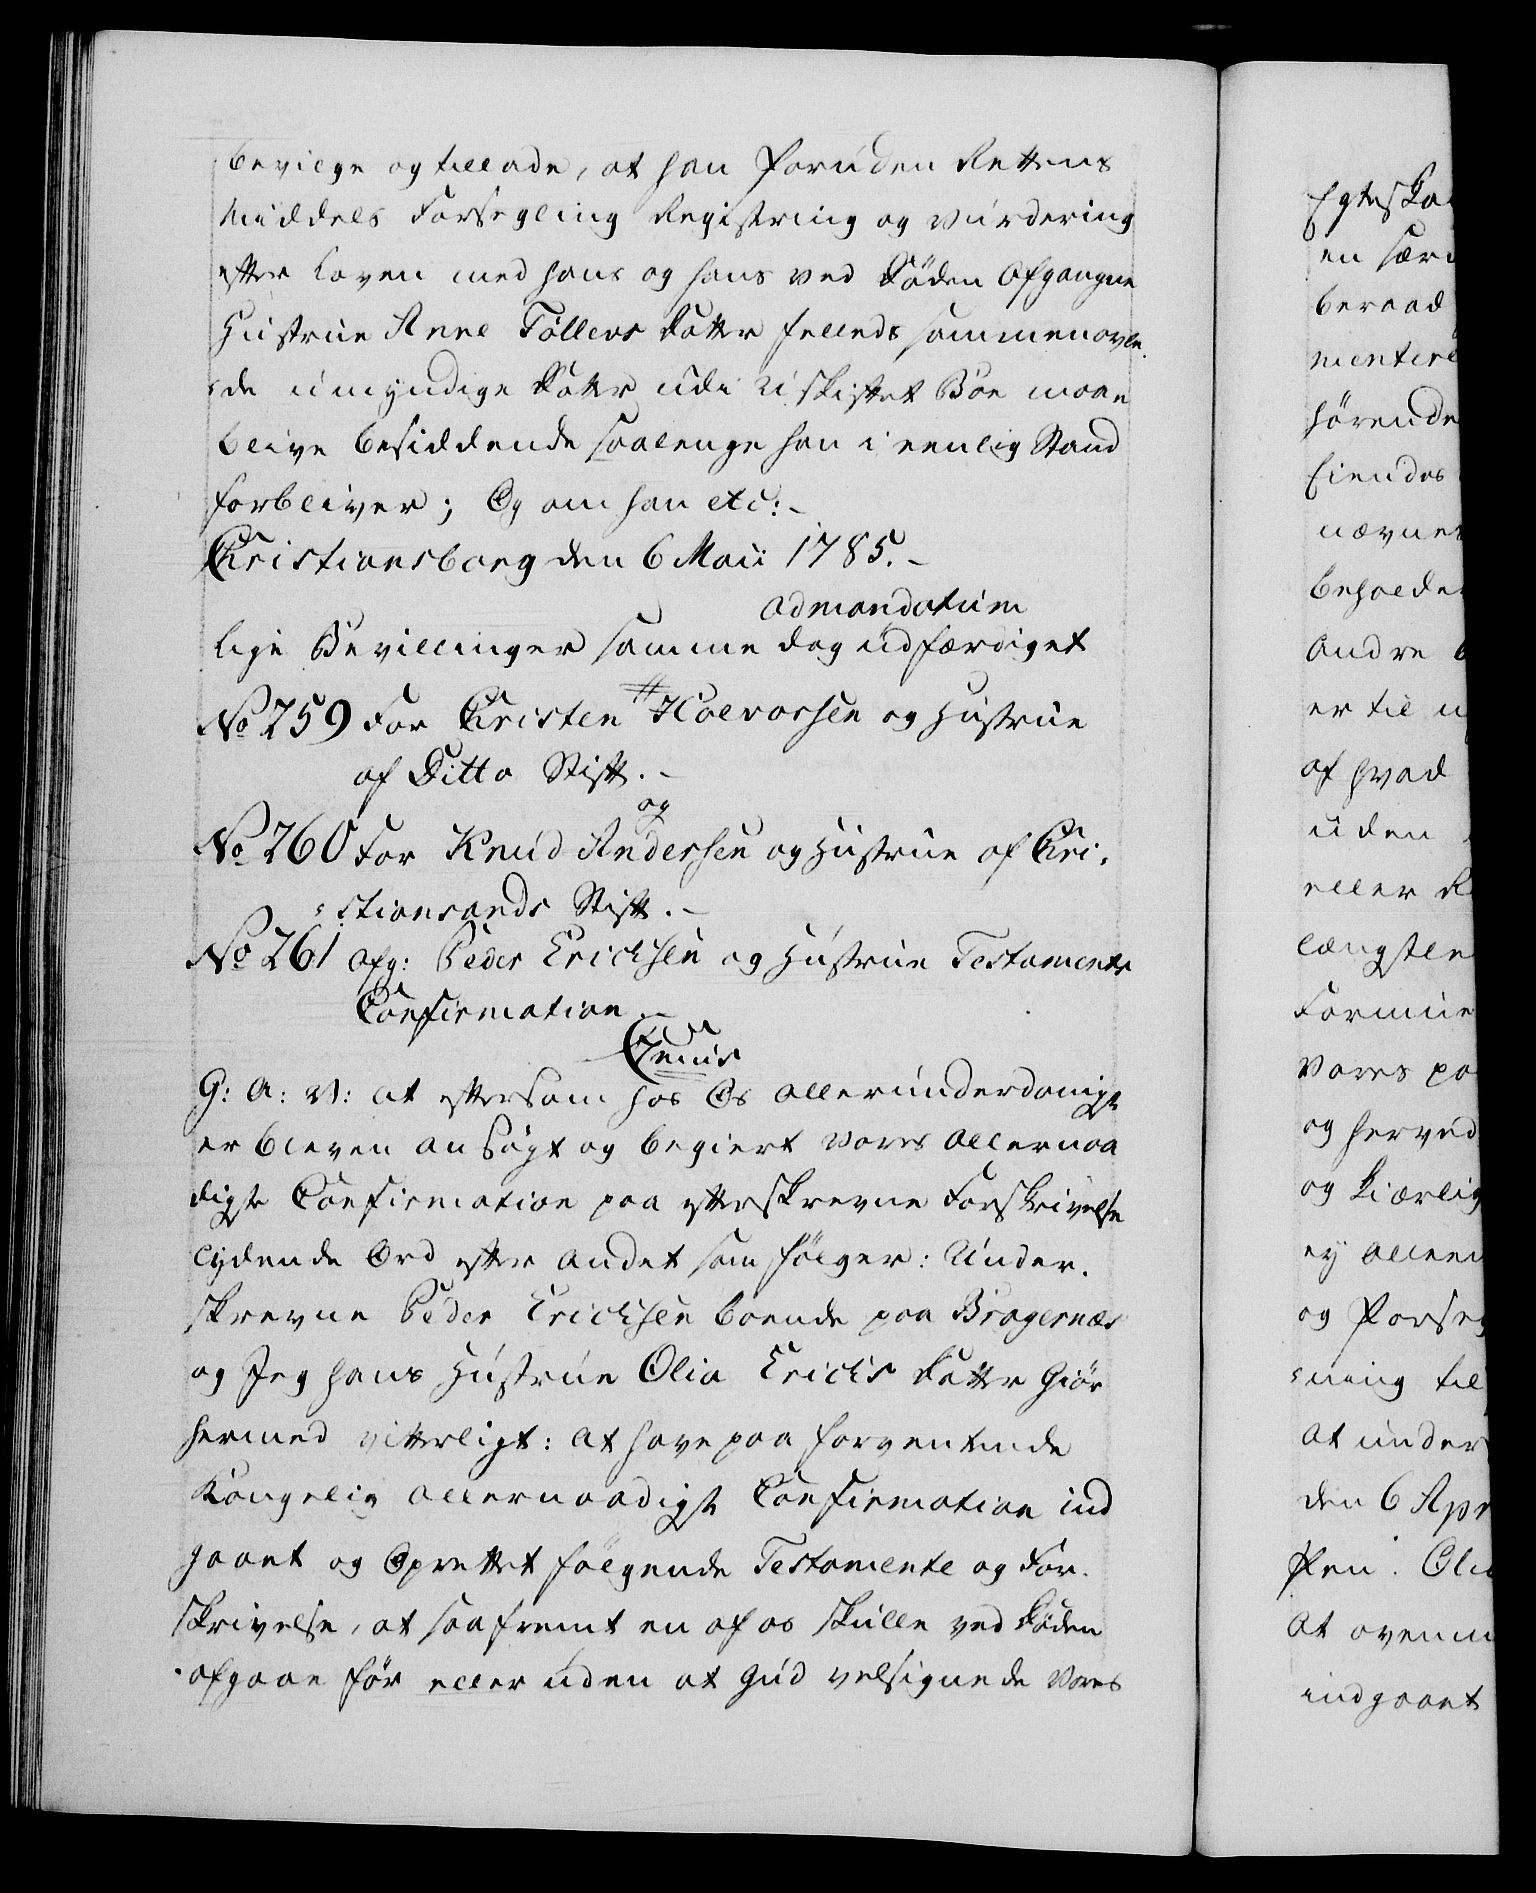 bevilge og tillade, at han foruden Rettens
Middels Forsegling Registring og Vurdering
efter Loven med hans og hans ved Døden Afgangne
Hustrue Anne Tollevs Datter felleds sammenavle
de umyndige Datter udi Uskiftet Boe maae
blive besiddende saalenge han i eenlig Stand
forbliver; Og om han etc:
Christiansborg den 6 Maii 1785.
ad mandatum
lige Bevillinger samme dag udfærdiget
No 259 For Christen Halvorsen og Hustrue
af Ditto Stift.
og
No 260 For Knud Andersen og Hustrue af Chri,
stiansands Stift.
No 261 Afg: Peder Erichsen og Hustrue Testamente
Confirmation
G: A: V: at eftersom hos Os allerunderdanigst
er bleven ansøgt og begiert Vores Allernaa
digste Confirmation paa efterskrevne Forskrivelse
lydende Ord efter andet som følger: Under.
skrevne Peder Erichsen boende paa Bragernæs
og Jeg hans Hustrue Olia Erichs Datter Giør
hermed vitterligt: at have paa forventende
Kongelig allernaadigste Confirmation ind
gaaet og Oprettet følgende Testamente og For.
skrivelse, at saafremt en af os skulle ved Døden
afgaae før eller uden at Gud velsignede Vores
Egteska
en sær
beraad
mentere
hørende
Eiendes
nævner
beholde
andre
er til
af hvad
uden
eller R
længstle
Formue
Vores pa
og herved
og kiærlig
ey alleen
og Forseg
ning til
at under
den 6 Apr
Olia
at ovenm
indgaaet